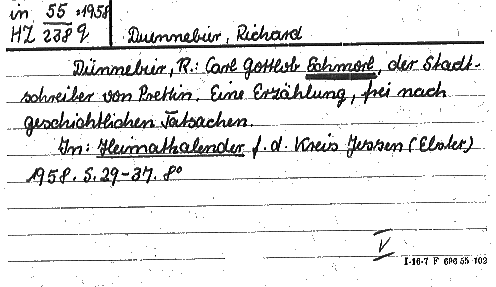 in 55,1958
HZ 238 q Duennebür, Richard
Dünnebür, R.: Carl Gottlob Schmorl, der Stadt-
schreiber von Prettin. Eine Erzählung, frei nach
geschichtlichen Tatsachen.
In: Heimatkalender f. d. Kreis Jessen (Elster)
1958. S. 29-37. 8°
V
I-16-7 F 686 55 102